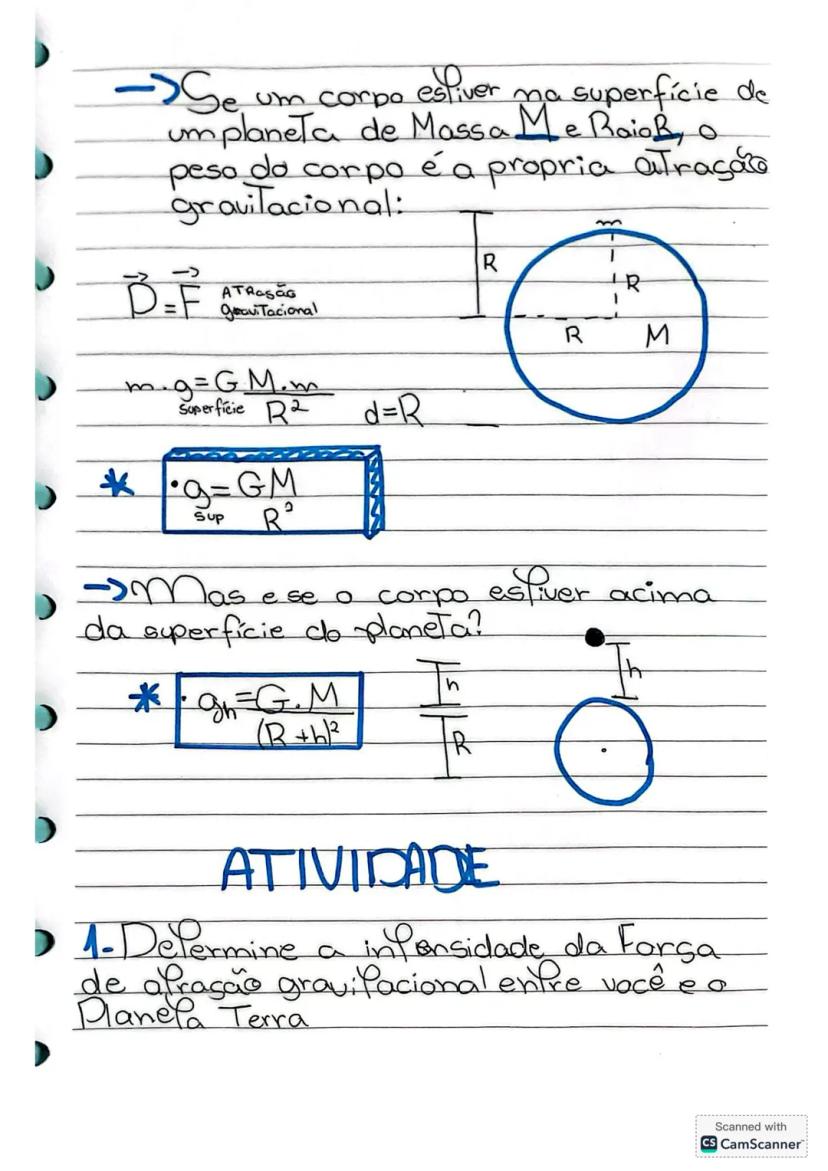 →Se um corpo estiver na superfície de
um planeta de Massa M e Raio R, o
peso do corpo é a propria atração
gravitacional:
m
R
R
P = F ATRAsão
gravitacional
R M
m.g = G M.m
superfície R² d=R
* • g = GM
sup R²
→Mas e se o corpo estiver acima
da superfície do planeta?
h
h
* • gh = G.M
(R+h)²
R
ATIVIDADE
1-Determine a intensidade da Força
de atração gravitacional entre você e o
Planeta Terra
Scanned with
CS CamScanner